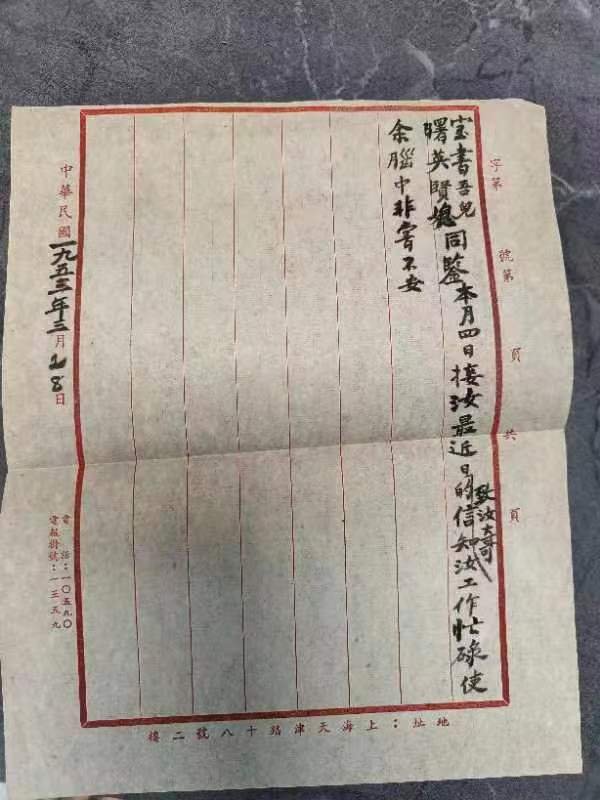 字第 號第 頁 共 頁
宝書吾兒
曙英賢媳同鑒本月四日接汝最近日的致汝大哥信知汝工作忙碌使
余腦中非常不安
中華民國一九五三年三月28日
電話：一〇五九〇
電報掛號：一三五九
地址：上海天津路十八號二樓